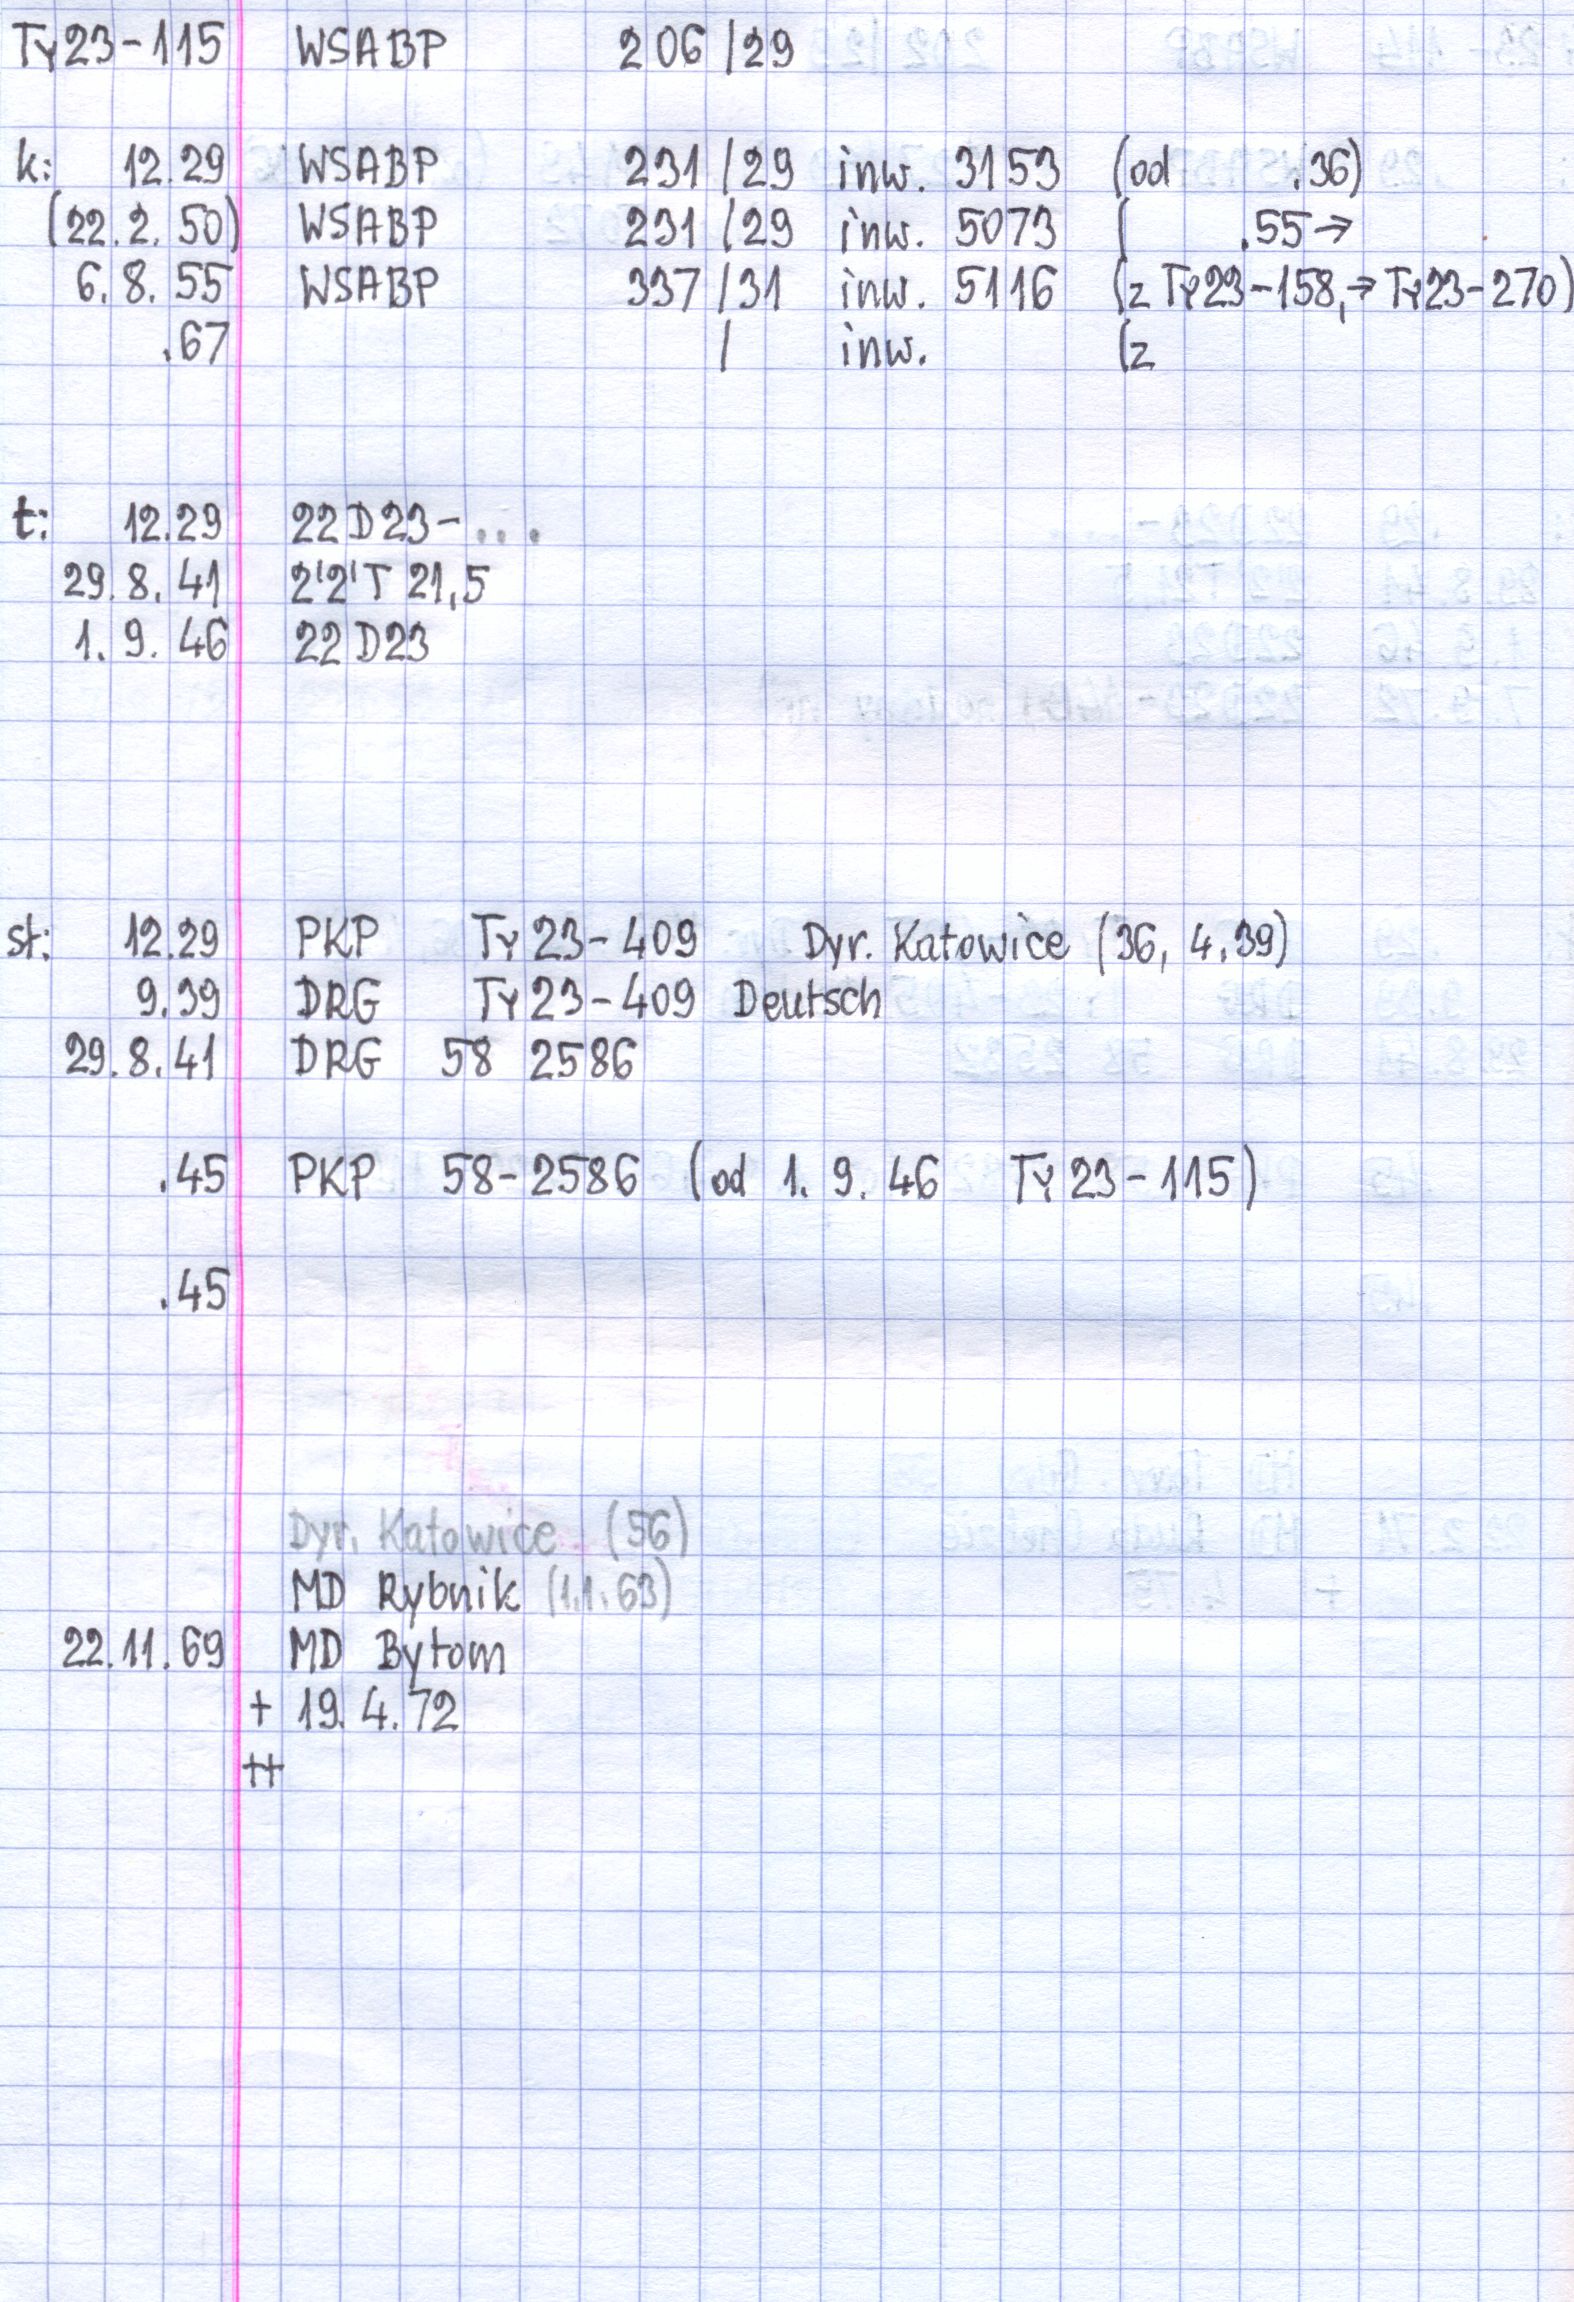 Ty23-115 WSABP 206/29
k: 12.29 WSABP 231/29 inw. 3153 (od .36)
(22.2.50) WSABP 231/29 inw. 5073 ( .55→
6.8.55 WSABP 337/31 inw. 5116 (z Ty23-158,→Ty23-270)
.67 / inw. (z
t: 12.29 22D23-...
29.8.41 2'2'T 21,5
1.9.46 22D23
st: 12.29 PKP Ty23-409 Dyr. Katowice (36, 4.39)
9.39 DRG Ty23-409 Deutsch
29.8.41 DRG 58 2586
.45 PKP 58-2586 (od 1.9.46 Ty23-115)
.45
Dyr. Katowice (56)
MD Rybnik (1.1.63)
22.11.69 MD Bytom
+ 19.4.72
++